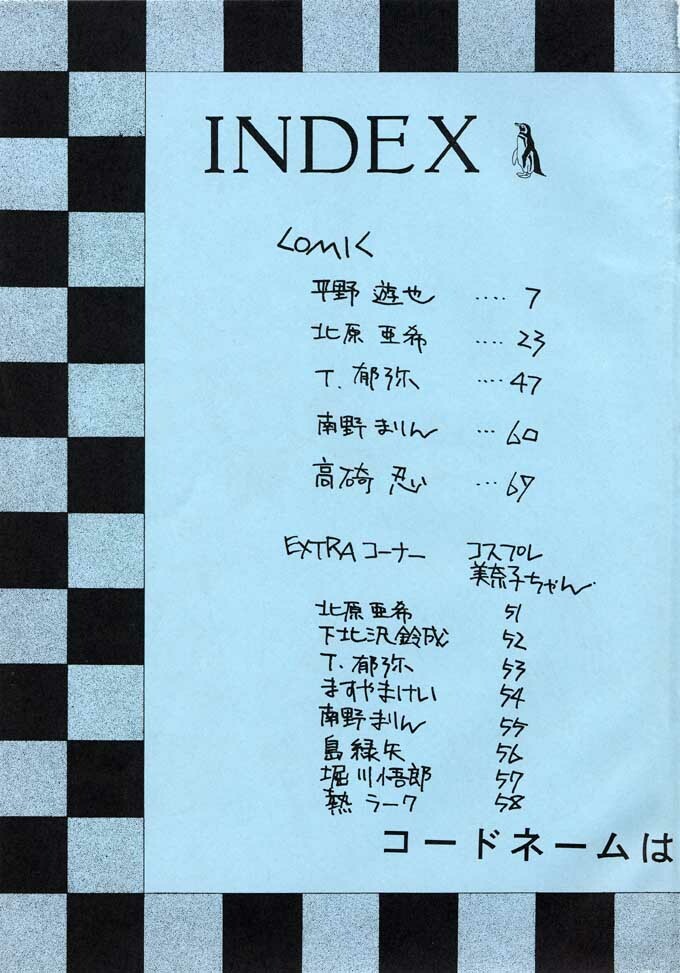 INDEX
COMIC
平野 遊也 .... 7
北原 亜希 .... 23
T. 郁弥 .... 47
南野 まりん ... 60
高碕 忍 ... 67
EXTRA コーナー コスプレ
美奈子ちゃん
北原 亜希 51
下北沢 鈴成 52
T. 郁弥 53
ますやまけい 54
南野 まりん 55
島 緑矢 56
堀川悟郎 57
熱 ラーク 58
コードネームは